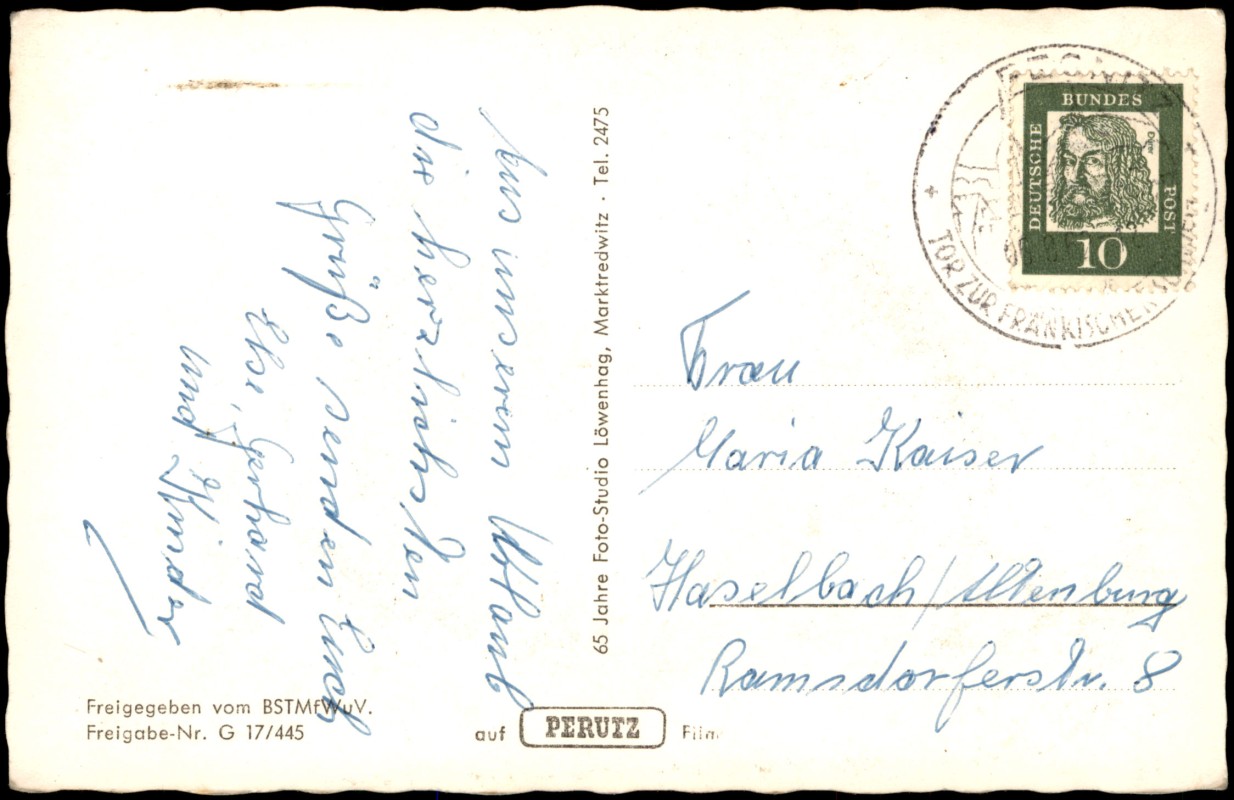 Aus unserem Urlaub
die herzlichsten
Grüße senden Euch
Else, Gerhard
und Kinder
Freigegeben vom BSTMfWuV.
Freigabe-Nr. G 17/445
65 Jahre Foto-Studio Löwenhag, Marktredwitz · Tel. 2475
auf PERUTZ Film
TOR ZUR FRÄNKISCHEN SCHWEIZ
DEUTSCHE
BUNDES
POST
Dürer
10
Frau
Maria Kaiser
Haselbach/Altenburg
Ramsdorferstr. 8